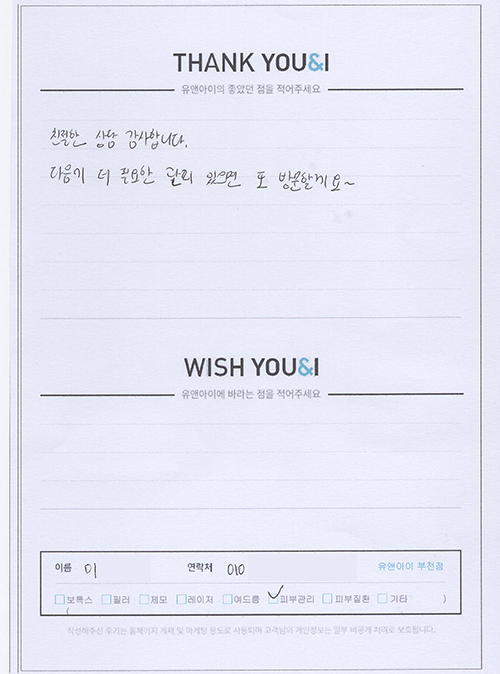 THANK YOU&I
유앤아이의 좋았던 점을 적어주세요
친절한 상담 감사합니다.
다음기 더 필요한 관리 있으면 또 방문할게요~
WISH YOU&I
유앤아이에 바라는 점을 적어주세요
이름 이 연락처 010 유앤아이 부천점
보톡스 필러 제모 레이저 여드름 피부관리 피부질환 기타 )
(
작성해주신 후기는 홈페이지 게재 및 마케팅 용도로 사용되며 고객님의 개인정보는 일부 비공개 처리로 보호됩니다.